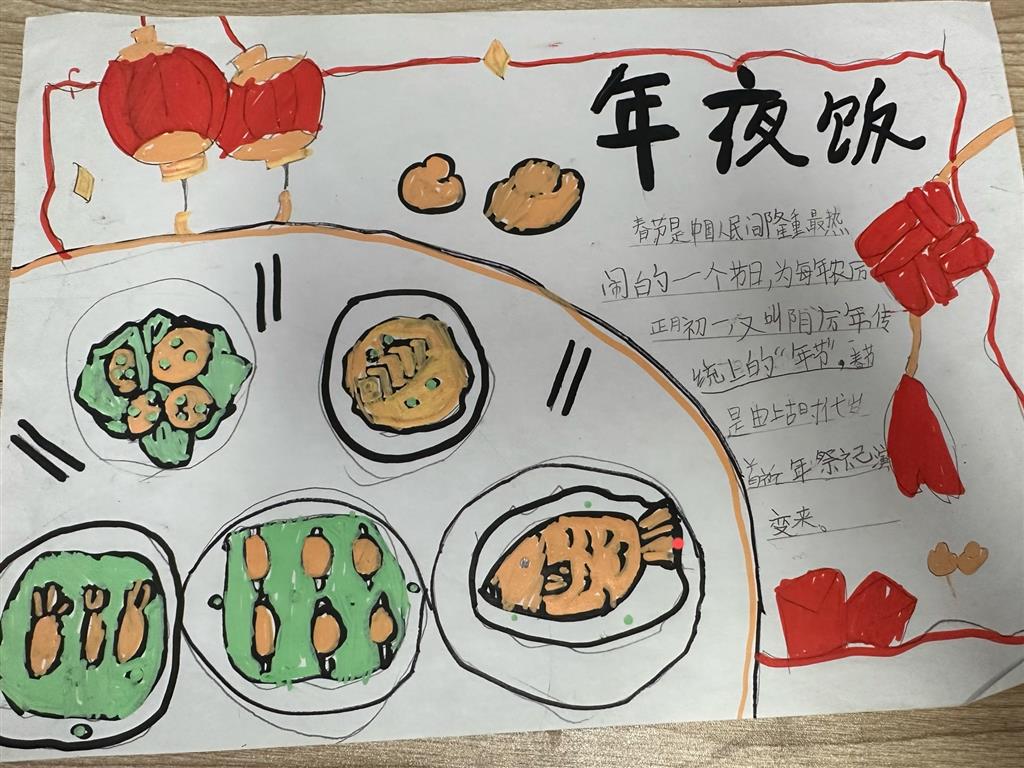 年夜饭
春节是中国人民间隆重最热
闹台的一个节日,为每年农历
正月初一,又叫阴历年传
统上的“年节”,春节
是由上古时代岁
首祈年祭祀演
变来。